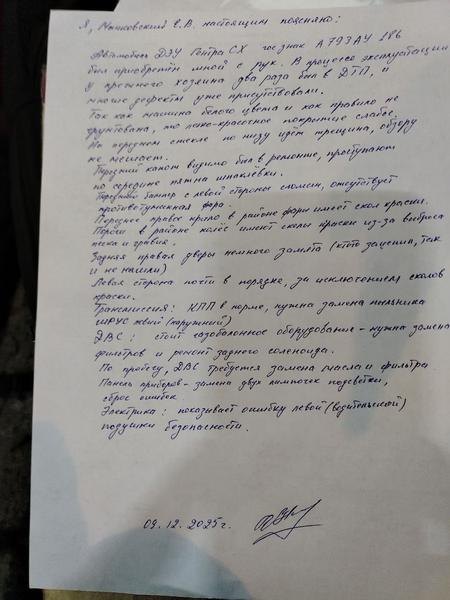 Я, Мынковский Е.В. настоящим поясняю:
Автомобиль ДЭУ Гентра СХ гос знак А793АУ 186
был приобретён мной с рук. В процессе эксплуатации
у прежнего хозяина два раза был в ДТП, и
многие дефекты уже присутствовали.
Так как машина белого цвета и как правило не
грунтована, то лако-красочное покрытие слабое.
На переднем стекле по низу идёт трещина, обзору
не мешает.
Передний капот видимо был в ремонте, проступают
по середине пятна шпаклёвки.
Переднего бампер с левой стороны сломан, отсутствует
противотуманная фара.
Переднее правое крыло в районе фары имеет скол краски.
Пороги в районе колёс имеют сколы краски из-за выброса
песка и гравия.
Задняя правая дверь немного замята (кто-то зацепил, так
и не нашли)
Левая сторона почти в порядке, за исключением сколов
краски.
Трансмиссия: КПП в норме, нужна замена пыльника
ШРУС (наружний)
ДВС: стоит газобалонное оборудование - нужна замена
фильтров и ремонт заднего соленоида.
По пробегу, ДВС требуется замена масла и фильтра
Панель приборов - замена двух лампочек подсветки,
сброс ошибок.
Электрика: показывает ошибку левой (водительской)
подушки безопасности.
09.12.2025г.